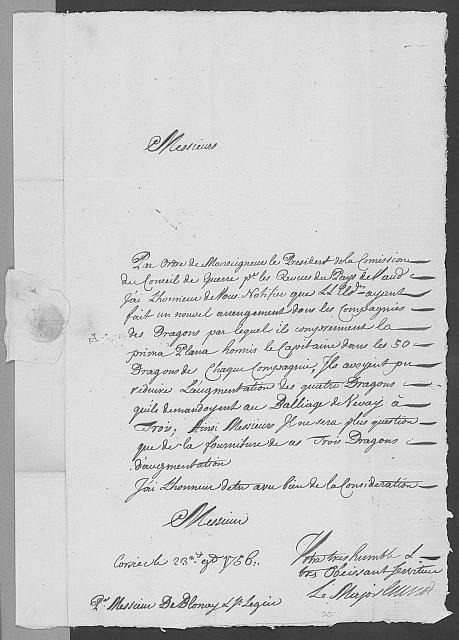 Messieurs
Par Ordre de Monseigneur le President de la Comission
du Conseil de Guerre pr les Revues du Pays de Vaud
J'ai Lhonneur de Vous Notifier que LL ayant
fait un nouvel arrengement dans les Compagnies
des Dragons par lequel ils comprennent la
prima Plana hormis le Capitaine dans les 50
Dragons de Chaque Compagnie, Ils avoyent pu
reduire L'augmentation des quatre Dragons
quils demandoyent au Balliage de Vevay à
Trois; Ainsi Messieurs Il ne sera plus question
que de la fourniture de ces Trois Dragons
d'augmentation
J'ai Lhonneur detre avec bien de la Consideration
Messieurs
Votre tres humble &
tres Obeissant serviteur
Le Major
Corsie le 23e 1756.
Pr Messieurs De Blonay & St Legier